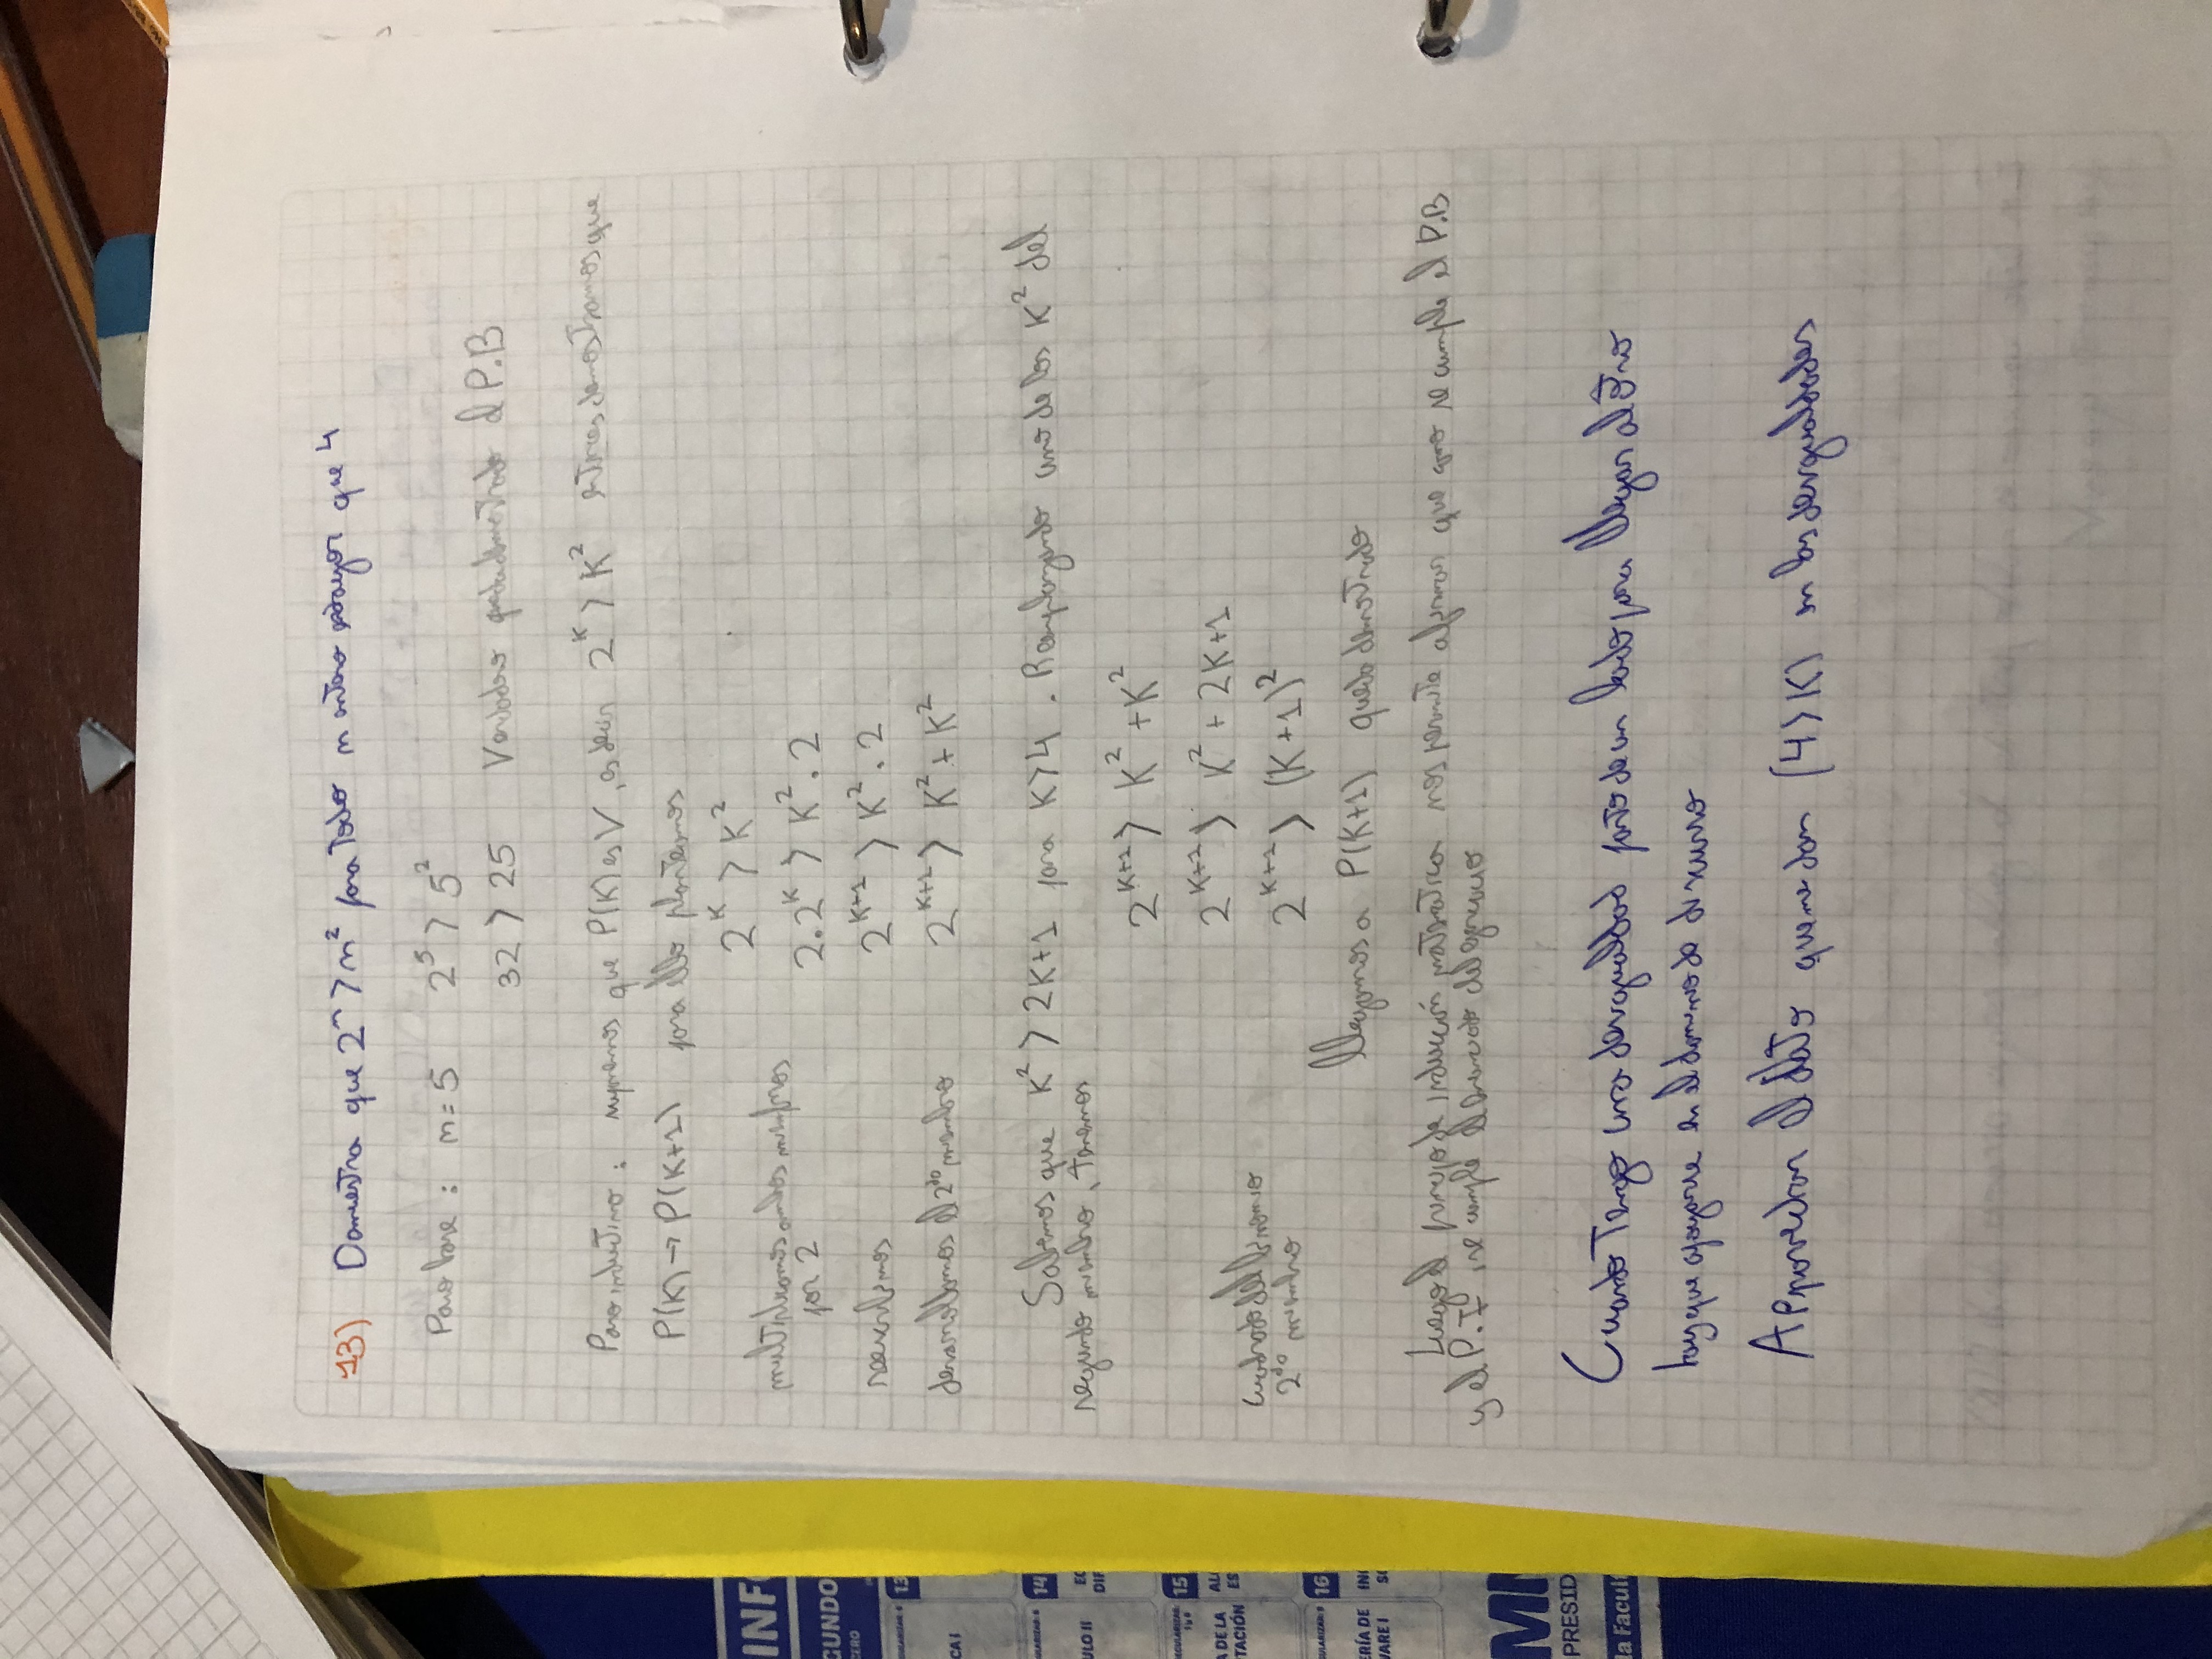 13) Demuestra que 2ⁿ > n² para todo n entero mayor que 4
Paso base : n = 5 2⁵ > 5²
32 > 25 Verdadero queda demostrado el P.B
Paso inductivo : suponemos que P(K) es V, es decir 2ᴷ > K² entonces demostramos que
P(K) → P(K+1) para ello planteamos
2ᴷ > K²
multiplicamos ambos miembros
por 2 2.2ᴷ > K² . 2
reescribimos 2ᴷ⁺¹ > K² . 2
desarrollamos el 2do miembro 2ᴷ⁺¹ > K² + K²
Sabemos que K² > 2K+1 para K>4 . Reemplazando uno de los K² del
segundo miembro, tenemos
2ᴷ⁺¹ > K² + K²
2ᴷ⁺¹ > K² + 2K+1
cuadrado del binomio
2do miembro 2ᴷ⁺¹ > (K+1)²
llegamos a P(K+1) queda demostrado
Luego el principio de inducción matemática nos permite afirmar que como se cumple el P.B
y el P.I, se cumple el enunciado del ejercicio
Cuando Tengo una desigualdad parto de un lado para llegar al otro
hay que apoyarse en el dominio de discurso
Approvechar el dato que me dan (4>K) en las desigualdades
INF
GUNDO
CERO
13
CA I
14
ULO II
EC
DIF
15
A DE LA
TACIÓN
AL
ES
16
ERÍA DE
WARE I
IN
SO
MN
PRESID
la Facult